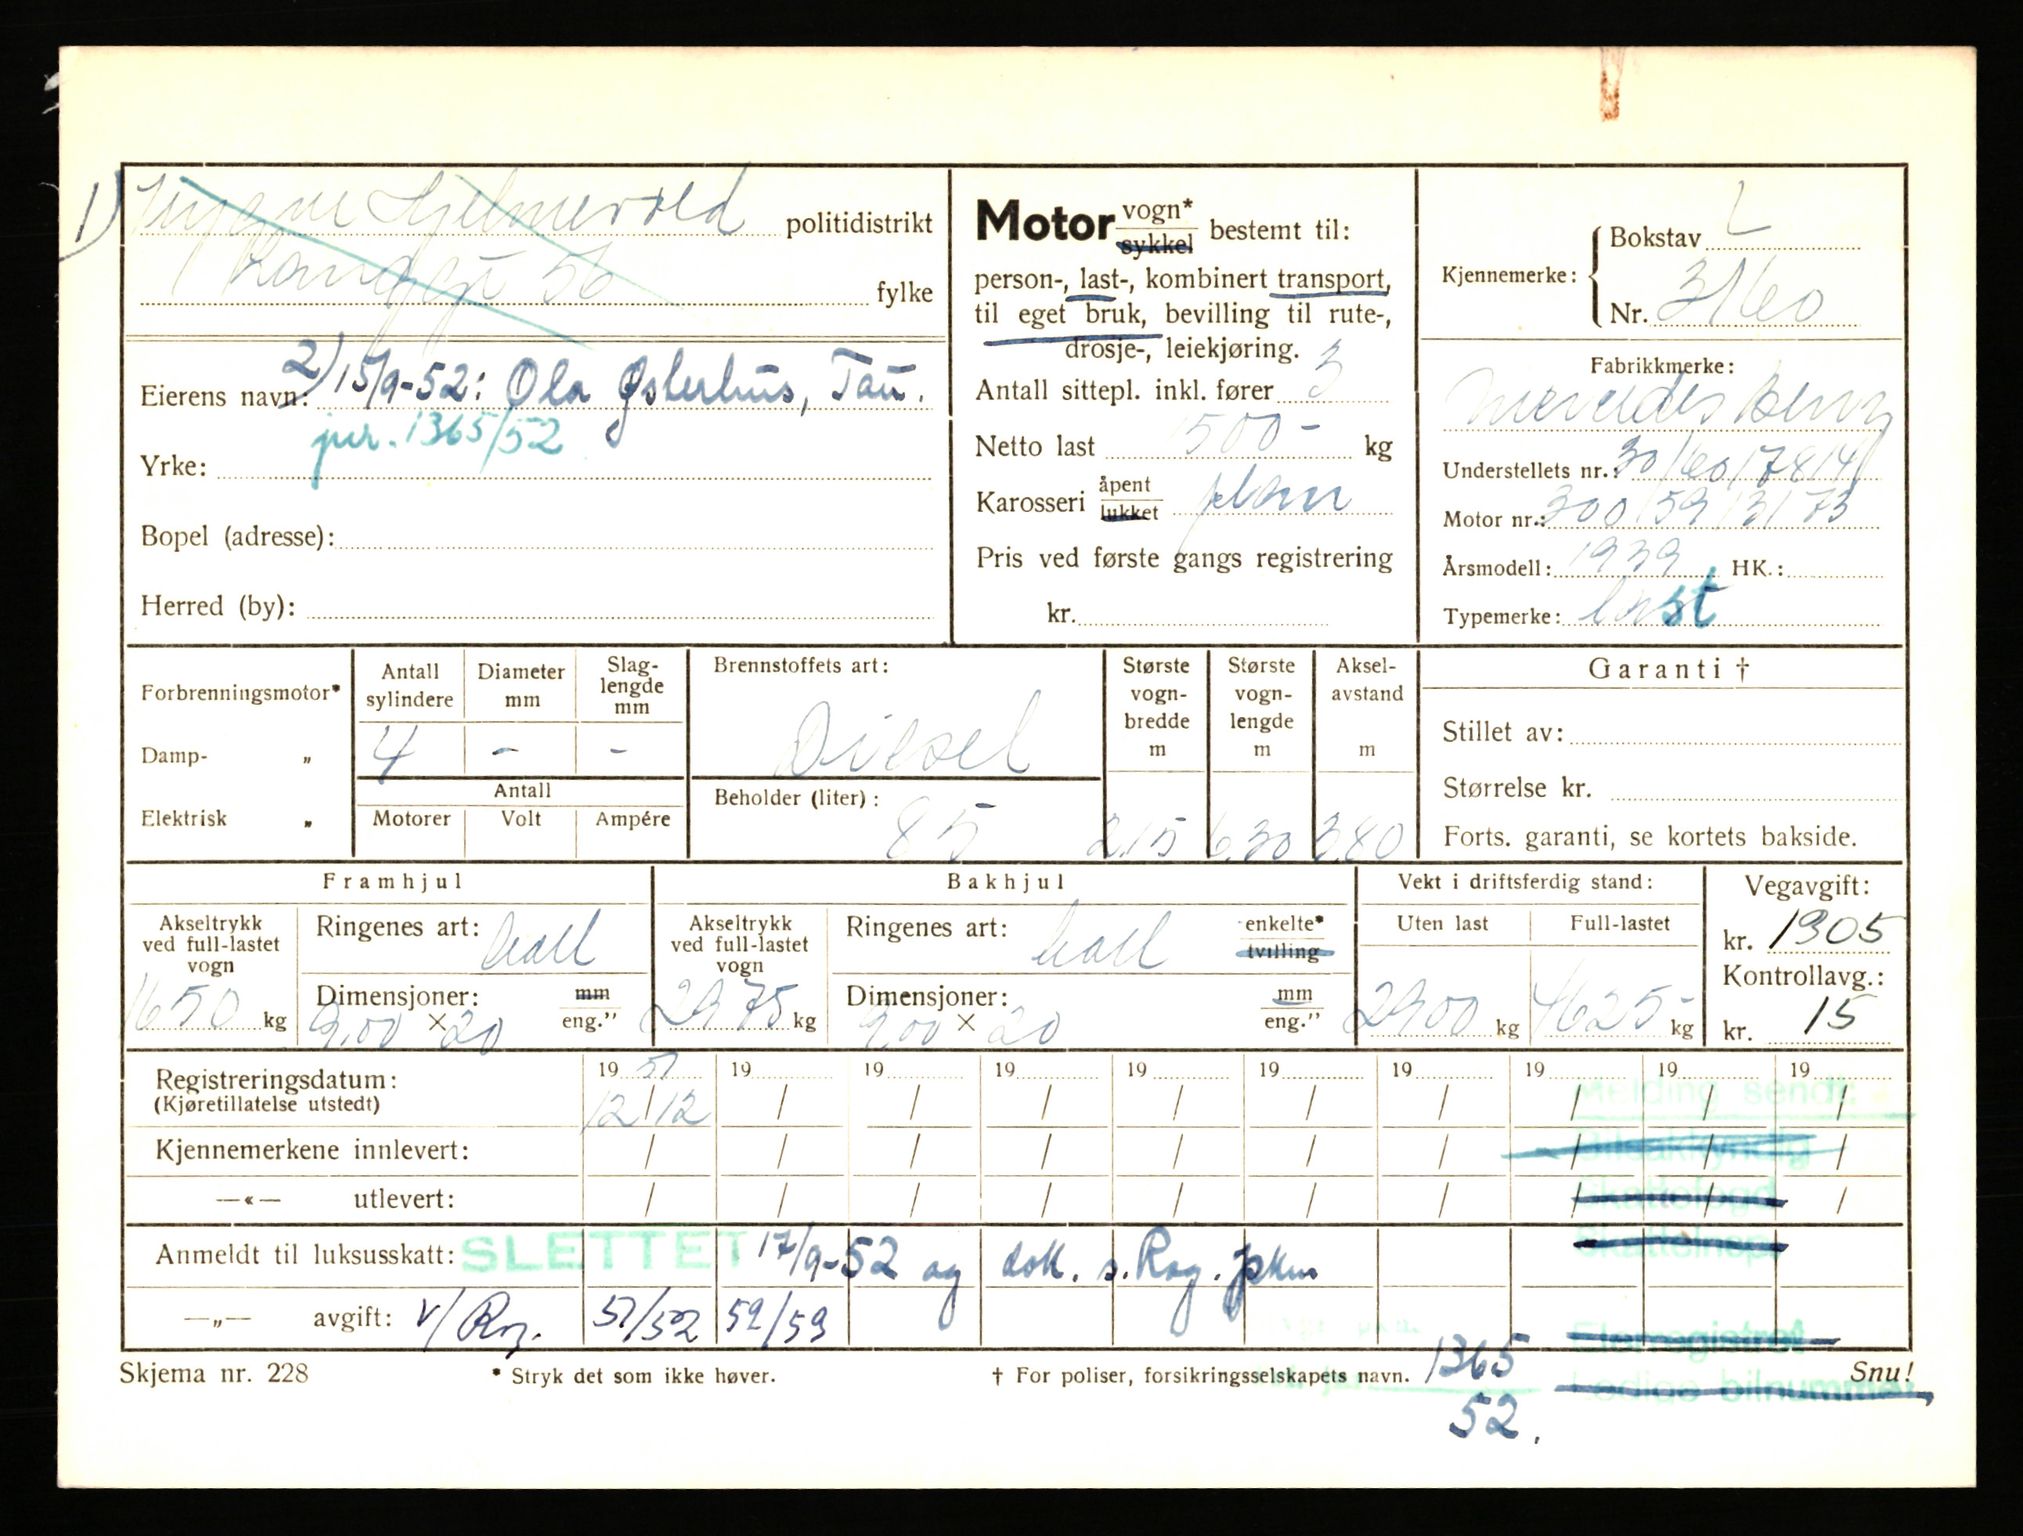 1) Trygve Hjelmevold politidistrikt
56 fylke
Eierens navn: 2) 15/9-52: Ola Østerhus, Tau.
jnr. 1365/52
Yrke:
Bopel (adresse):
Herred (by):
Motor vogn* sykkel bestemt til:
person-, last-, kombinert transport,
til eget bruk, bevilling til rute-,
drosje-, leiekjøring.
Antall sittepl. inkl. fører 3
Netto last 1500- kg
Karosseri åpent lukket plan
Pris ved første gangs registrering
kr.
Kjennemerke: Bokstav L
Nr. 3160
Fabrikkmerke:
Mercedes Benz
Understellets nr.: 30/60/7814
Motor nr.: 300/59/3173
Årsmodell: 1939 HK.:
Typemerke: last
Forbrenningsmotor*
Damp- „
Elektrisk „
Antall sylindere 4
Diameter mm -
Slag-lengde mm -
Antall
Motorer Volt Ampére
Brennstoffets art:
Diesel
Beholder (liter):
85
Største vogn-bredde m 2,15
Største vogn-lengde m 6,30
Aksel-avstand m 3,80
Garanti †
Stillet av:
Størrelse kr.
Forts. garanti, se kortets bakside.
Framhjul
Akseltrykk ved full-lastet vogn 1650 kg
Ringenes art:
Dimensjoner: 9,00 × 20 mm eng.”
Bakhjul
Akseltrykk ved full-lastet vogn 2975 kg
Ringenes art: enkelte* tvilling
Dimensjoner: 9,00 × 20 mm eng.”
Vekt i driftsferdig stand:
Uten last 2900 kg
Full-lastet 4625- kg
Vegavgift:
kr. 1305
Kontrollavg.:
kr. 15
Registreringsdatum: 19 51 19 19 19 19 19 19 19 19 19
(Kjøretillatelse utstedt) 12/12 / / / / / / / / /
Melding sendt:
Kjennemerkene innlevert: / / / / / / / / / /
Bilsakkyndig
—«— utlevert: / / / / / / / / / /
Skattefogd
Anmeldt til luksusskatt: SLETTET 17/9-52 og dok. s. Rog. pkm
Skatteinsp.
—„— avgift: v/ Rog. 51/52 52/53
Eierregistret
Skjema nr. 228
* Stryk det som ikke høver.
† For poliser, forsikringsselskapets navn.
1365
52.
Snu!
Ledige bilnummer